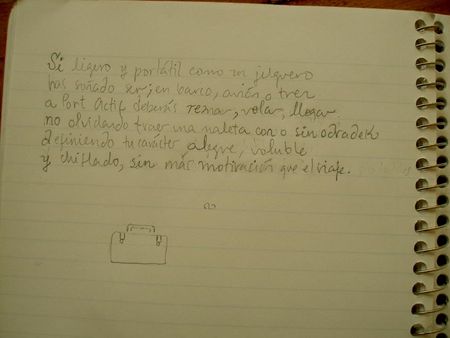 Si ligero y portátil como un jilguero
has soñado ser; en barco, avión o tren
a Port Actif deberás remar, volar, llegar,
no olvidando traer una maleta con o sin odradek
definiendo tu carácter alegre, voluble
y chiflado, sin más motivación que el viaje.